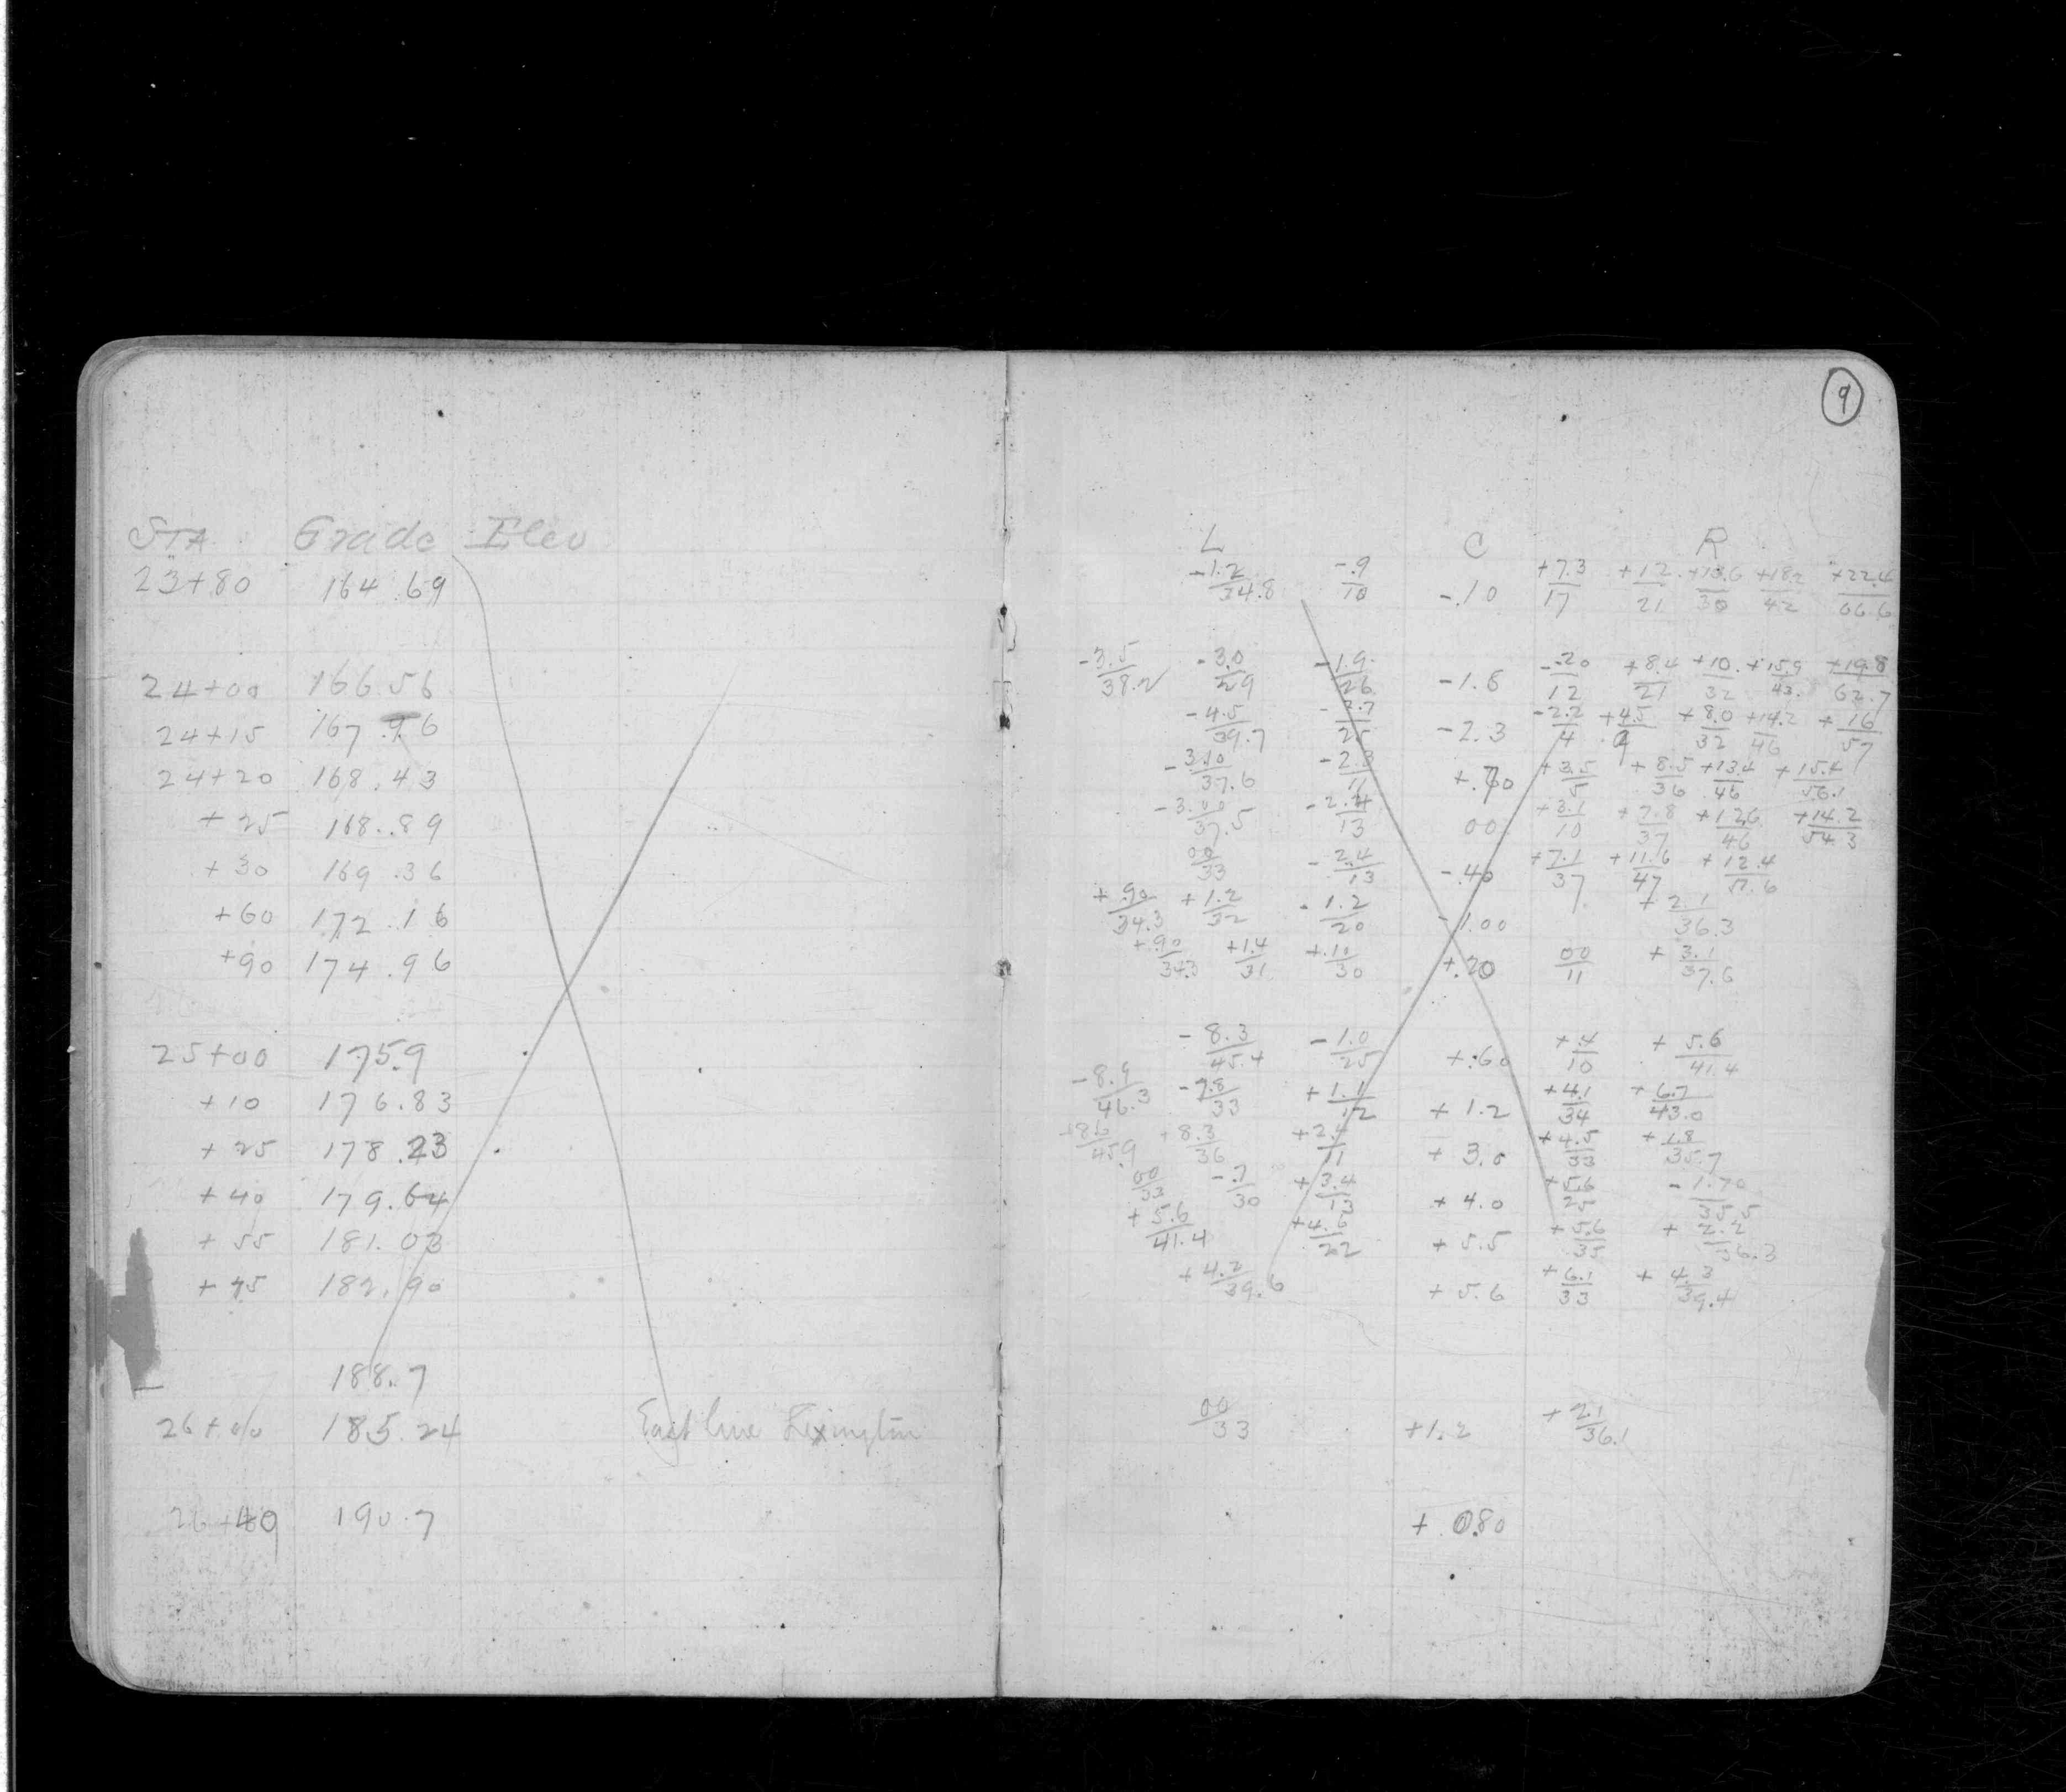 9
STA Grade Elev
L C R
23+80 164.69
-1.2/34.8 -.9/10 -.10 +7.3/17 +12./21 +13.6/30 +18.2/42 +22.4/66.6
24+00 166.56
-3.5/38.2 -3.0/29 -1.9/26 -1.6 -.20/12 +8.4/21 +10./32 +15.9/43. +19.8/62.7
24+15 167.96
-4.5/39.7 -2.7/25 -2.3 -2.2/4 +4.5/9 +8.0/32 +14.2/46 +16/57
24+20 168.43
-3.10/37.6 -2.3/11 +.70 +3.5/5 +8.5/36 +13.4/46 +15.4/56.1
+25 168.89
-3.00/37.5 -2.4/13 00 +3.1/10 +7.8/37 +12.6/46 +14.2/54.3
+30 169.36
00/33 -2.4/13 -.40 +7.1/37 +11.6/47 +12.4/51.6
+60 172.16
+.90/34.3 +1.2/32 -1.2/20 -1.00 +2.1/36.3
+90 174.96
+.90/34.3 +1.4/31 +.10/30 +.20 00/11 +3.1/37.6
25+00 175.9
-8.3/45.4 -1.0/25 +.60 +.4/10 +5.6/41.4
+10 176.83
-8.9/46.3 -7.8/33 +1.1/12 +1.2 +4.1/34 +6.7/43.0
+25 178.23
+8.6/45.9 +8.3/36 +2.4/11 +3.0 +4.5/33 +1.8/35.7
+40 179.64
00/33 -.7/30 +3.4/13 +4.0 +5.6/25 -1.70/35.5
+55 181.03
+5.6/41.4 +4.6/22 +5.5 +5.6/35 +2.2/36.3
+75 182.90
+4.2/39.6 +5.6 +6.1/33 +4.3/39.4
188.7
26+00 185.24 East line Lexington
00/33 +1.2 +2.1/36.1
26+40 190.7
+ 0.80